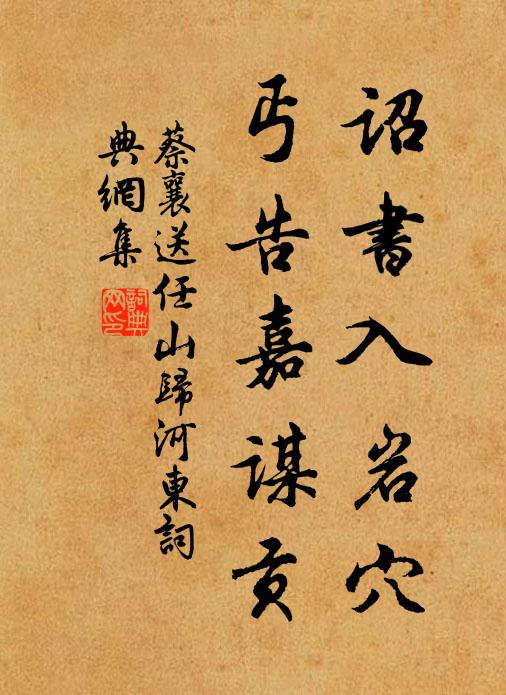 诏書入岩穴
丐告嘉謀贡
蔡襄送任山歸河東詞
典網集
詞典網印